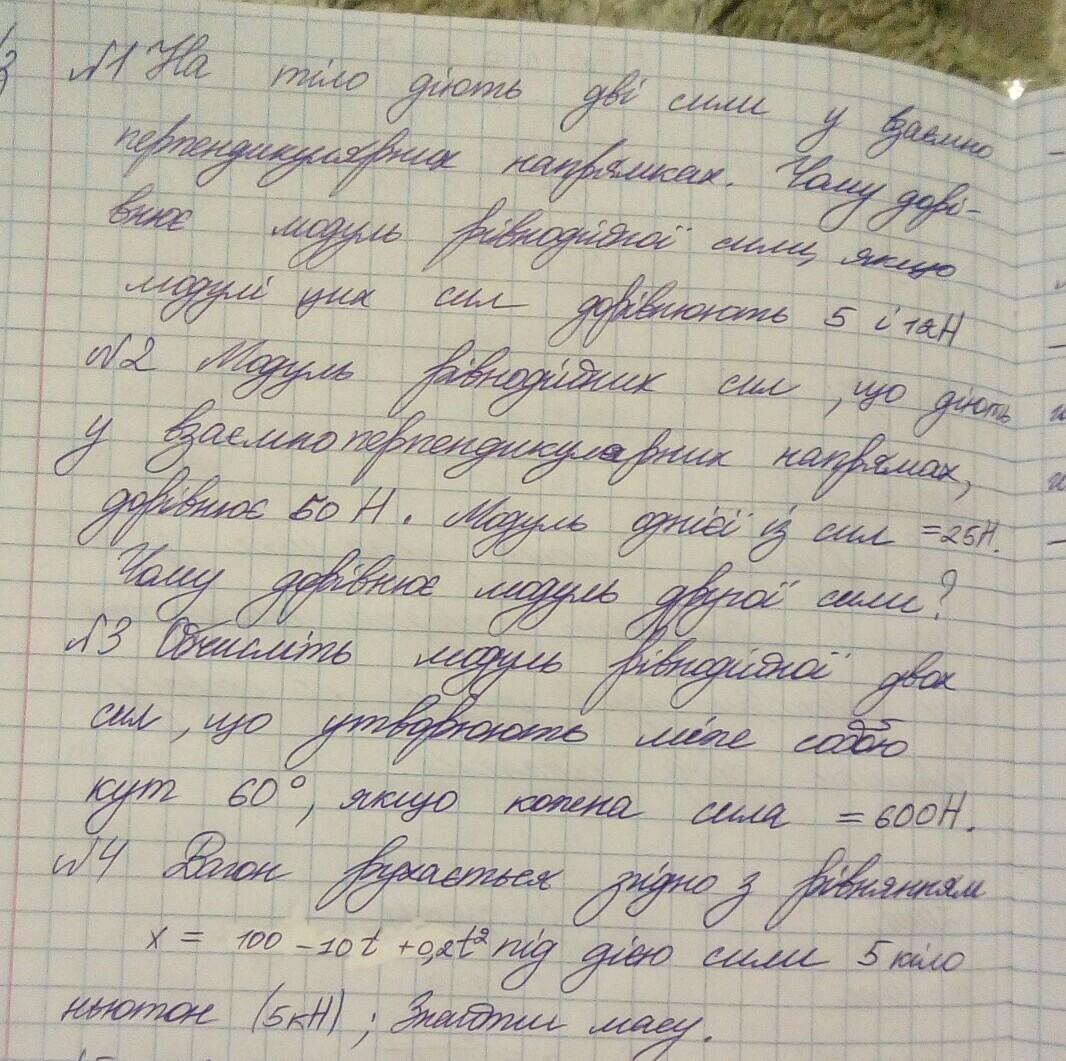 №1 На тіло діють дві сили у взаємно
перпендикулярних напрямках. Чому дорі-
внює модуль рівнодійної сили, якщо
модулі цих сил дорівнюють 5 і 12Н
№2 Модуль рівнодійних сил, що діють
у взаємноперпендикулярних напрямах,
дорівнює 50 Н. Модуль однієї із сил =25Н.
Чому дорівнює модуль другої сили?
№3 Обчисліть модуль рівнодійної двох
сил, що утворюють між собою
кут 60°, якщо кожна сила =600Н.
№4 Вагон рухається згідно з рівнянням
x = 100 -10t +0,2t² під дією сили 5 кіло
ньютон (5кН); Знайдіть масу.